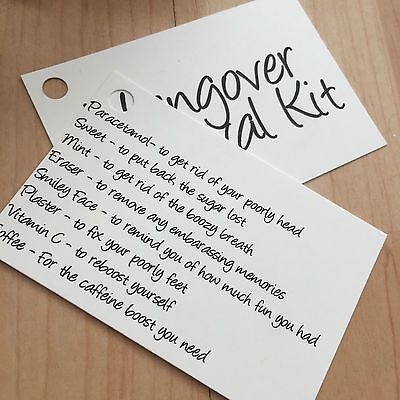 ngover
al Kit
Paracetamol- to get rid of your poorly head
Sweet - to put back the sugar lost
Mint - to get rid of the boozy breath
Eraser - to remove any embarassing memories
Smiley Face - to remind you of how much fun you had
Plaster - to fix your poorly feet
Vitamin C - to reboost yourself
offee - For the caffeine boost you need